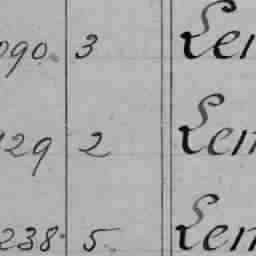 090. 3 Len
129 2 Len
238. 5. Len